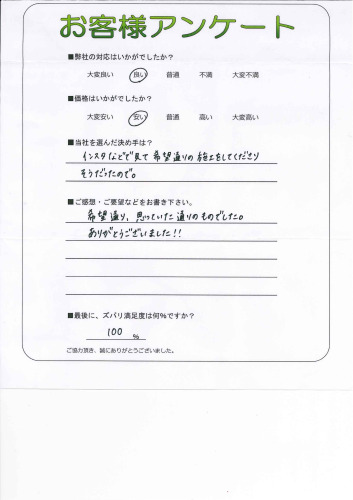 お客様アンケート
■弊社の対応はいかがでしたか？
大変良い 良い 普通 不満 大変不満
■価格はいかがでしたか？
大変安い 安い 普通 高い 大変高い
■当社を選んだ決め手は？
インスタなどで見て希望通りの施工をしてくださり
そうだったので。
■ご感想・ご要望などをお書き下さい。
希望通り、思っていた通りのものでした。
ありがとうございました!!
■最後に、ズバリ満足度は何％ですか？
100 %
ご協力頂き、誠にありがとうございました。